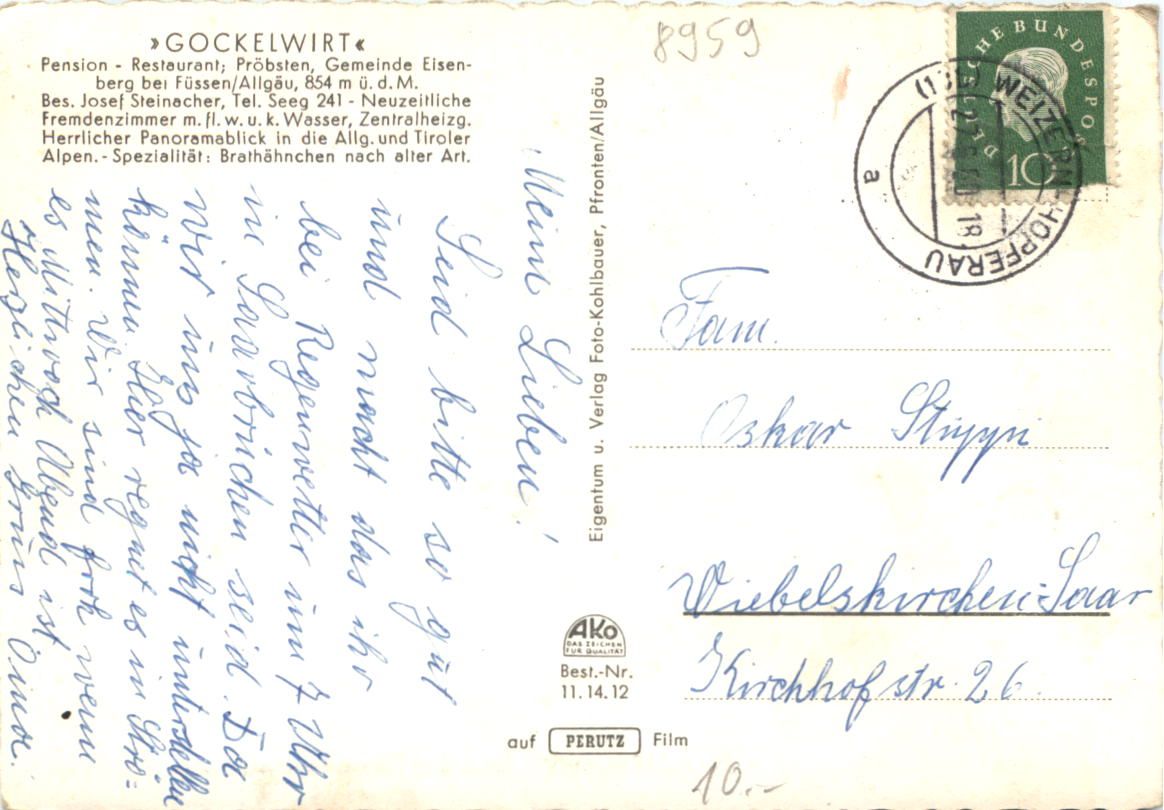 »GOCKELWIRT«
Pension - Restaurant; Pröbsten, Gemeinde Eisen-
berg bei Füssen/Allgäu, 854 m ü. d. M.
Bes. Josef Steinacher, Tel. Seeg 241 - Neuzeitliche
Fremdenzimmer m. fl. w. u. k. Wasser, Zentralheizg.
Herrlicher Panoramablick in die Allg. und Tiroler
Alpen. - Spezialität: Brathähnchen nach alter Art.
Meine Lieben!
Seid bitte so gut
und macht das ihr
bei Regenwetter um 7 Uhr
in Saarbrücken seid. Da
wir uns ja nicht unterstellen
können. Hier regnet es in Strö-
men. Wir sind froh wenn
es Mittwoch Abend ist.
Herzlichen Gruss
Eigentum u. Verlag Foto-Kohlbauer, Pfronten/Allgäu
AKO
DAS ZEICHEN
FÜR QUALITÄT
Best.-Nr.
11.14.12
auf PERUTZ Film
8959
DEUTSCHE BUNDESPOST
10
WEIZERN-HOPFERAU
a
18
Fam.
Oskar Stuppi
Wiebelskirchen-Saar
Kirchhofstr. 26.
10.-